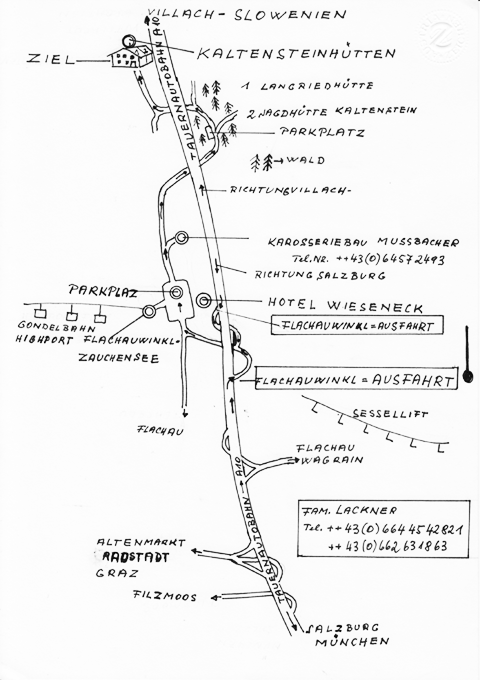 VILLACH - SLOWENIEN
ZIEL
KALTENSTEINHÜTTEN
TAUERNAUTOBAHN A10
1 LANGRIEDHÜTTE
2 JAGDHÜTTE KALTENSTEIN
PARKPLATZ
WALD
RICHTUNG VILLACH-
KAROSSERIEBAU MUSSBACHER
Tel.Nr. ++43(0)64572493
RICHTUNG SALZBURG
PARKPLAZ
HOTEL WIESENECK
GONDELBAHN
HIGHPORT FLACHAUWINKL-
ZAUCHENSEE
FLACHAUWINKL=AUSFAHRT
FLACHAUWINKL=AUSFAHRT
SESSELLIFT
FLACHAU
FLACHAU
WAGRAIN
TAUERNAUTOBAHN → A10
FAM. LACKNER
Tel. ++43(0)6644542821
++43(0)662631863
ALTENMARKT
RADSTADT
GRAZ
FILZMOOS
TAUERNAUTOBAHN
SALZBURG
MÜNCHEN